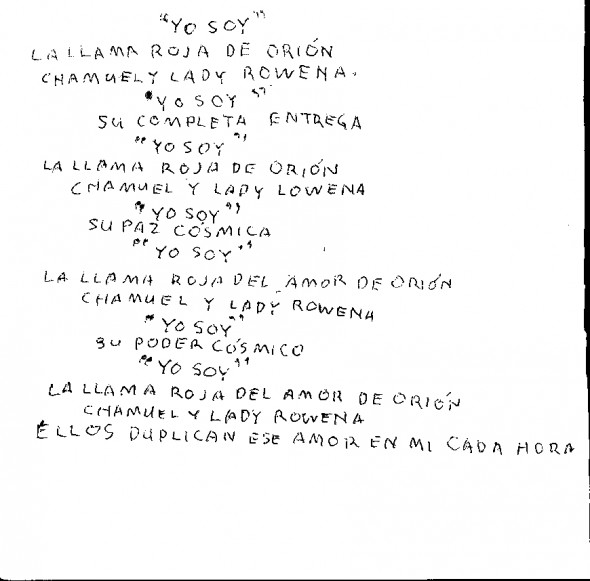 "YO SOY"
LA LLAMA ROJA DE ORIÓN
CHAMUEL Y LADY ROWENA.
"YO SOY"
SU COMPLETA ENTREGA
"YO SOY"
LA LLAMA ROJA DE ORIÓN
CHAMUEL Y LADY LOWENA
"YO SOY"
SU PAZ CÓSMICA
"YO SOY"
LA LLAMA ROJA DEL AMOR DE ORIÓN
CHAMUEL Y LADY ROWENA
"YO SOY"
SU PODER CÓSMICO
"YO SOY"
LA LLAMA ROJA DEL AMOR DE ORIÓN
CHAMUEL Y LADY ROWENA
ELLOS DUPLICAN ESE AMOR EN MI CADA HORA